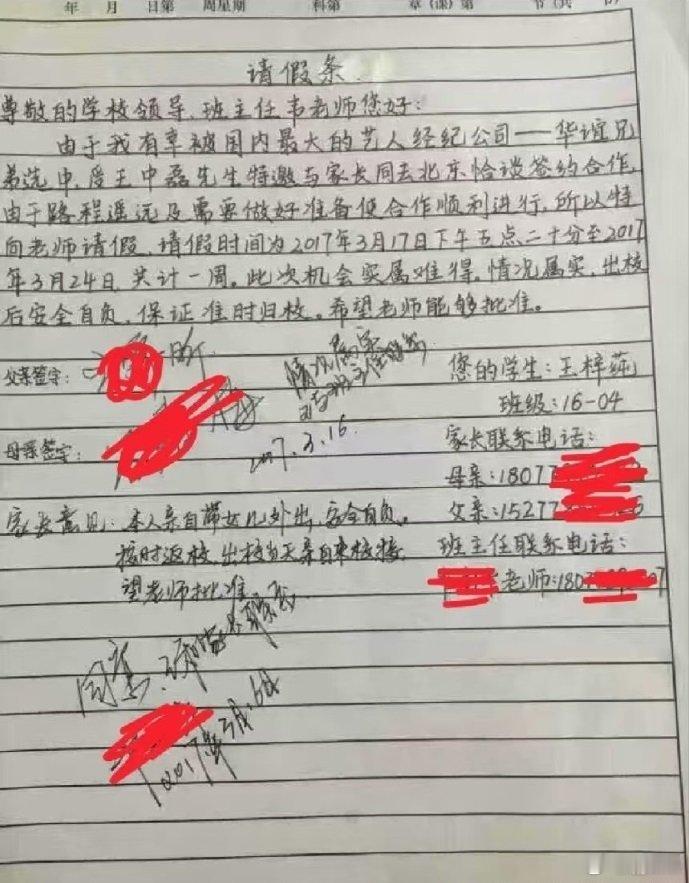 年 月 日第 周星期 科第 章(课)第 节(共 节)
请假条
尊敬的学校领导、班主任韦老师您好:
由于我有幸被国内最大的艺人经纪公司——华谊兄
弟选中,受王中磊先生特邀与家长同去北京恰谈签约合作,
由于路程遥远及需要做好准备使合作顺利进行,所以特
向老师请假,请假时间为2017年3月17日下午五点二十分至2017
年3月24日,共计一周。此次机会实属难得,情况属实,出校
后安全自负,保证准时归校。希望老师能够批准。
父亲签字:
情况属实
2017.3.16
母亲签字:
您的学生:王梓莼
班级:16-04
家长联系电话:
母亲:1807
父亲:15277
班主任联系电话:
老师:180 7
家长意见:本人亲自带女儿外出,安全自负。
按时返校,出校当天亲自来校接
望老师批准
同意
2017年3月16日